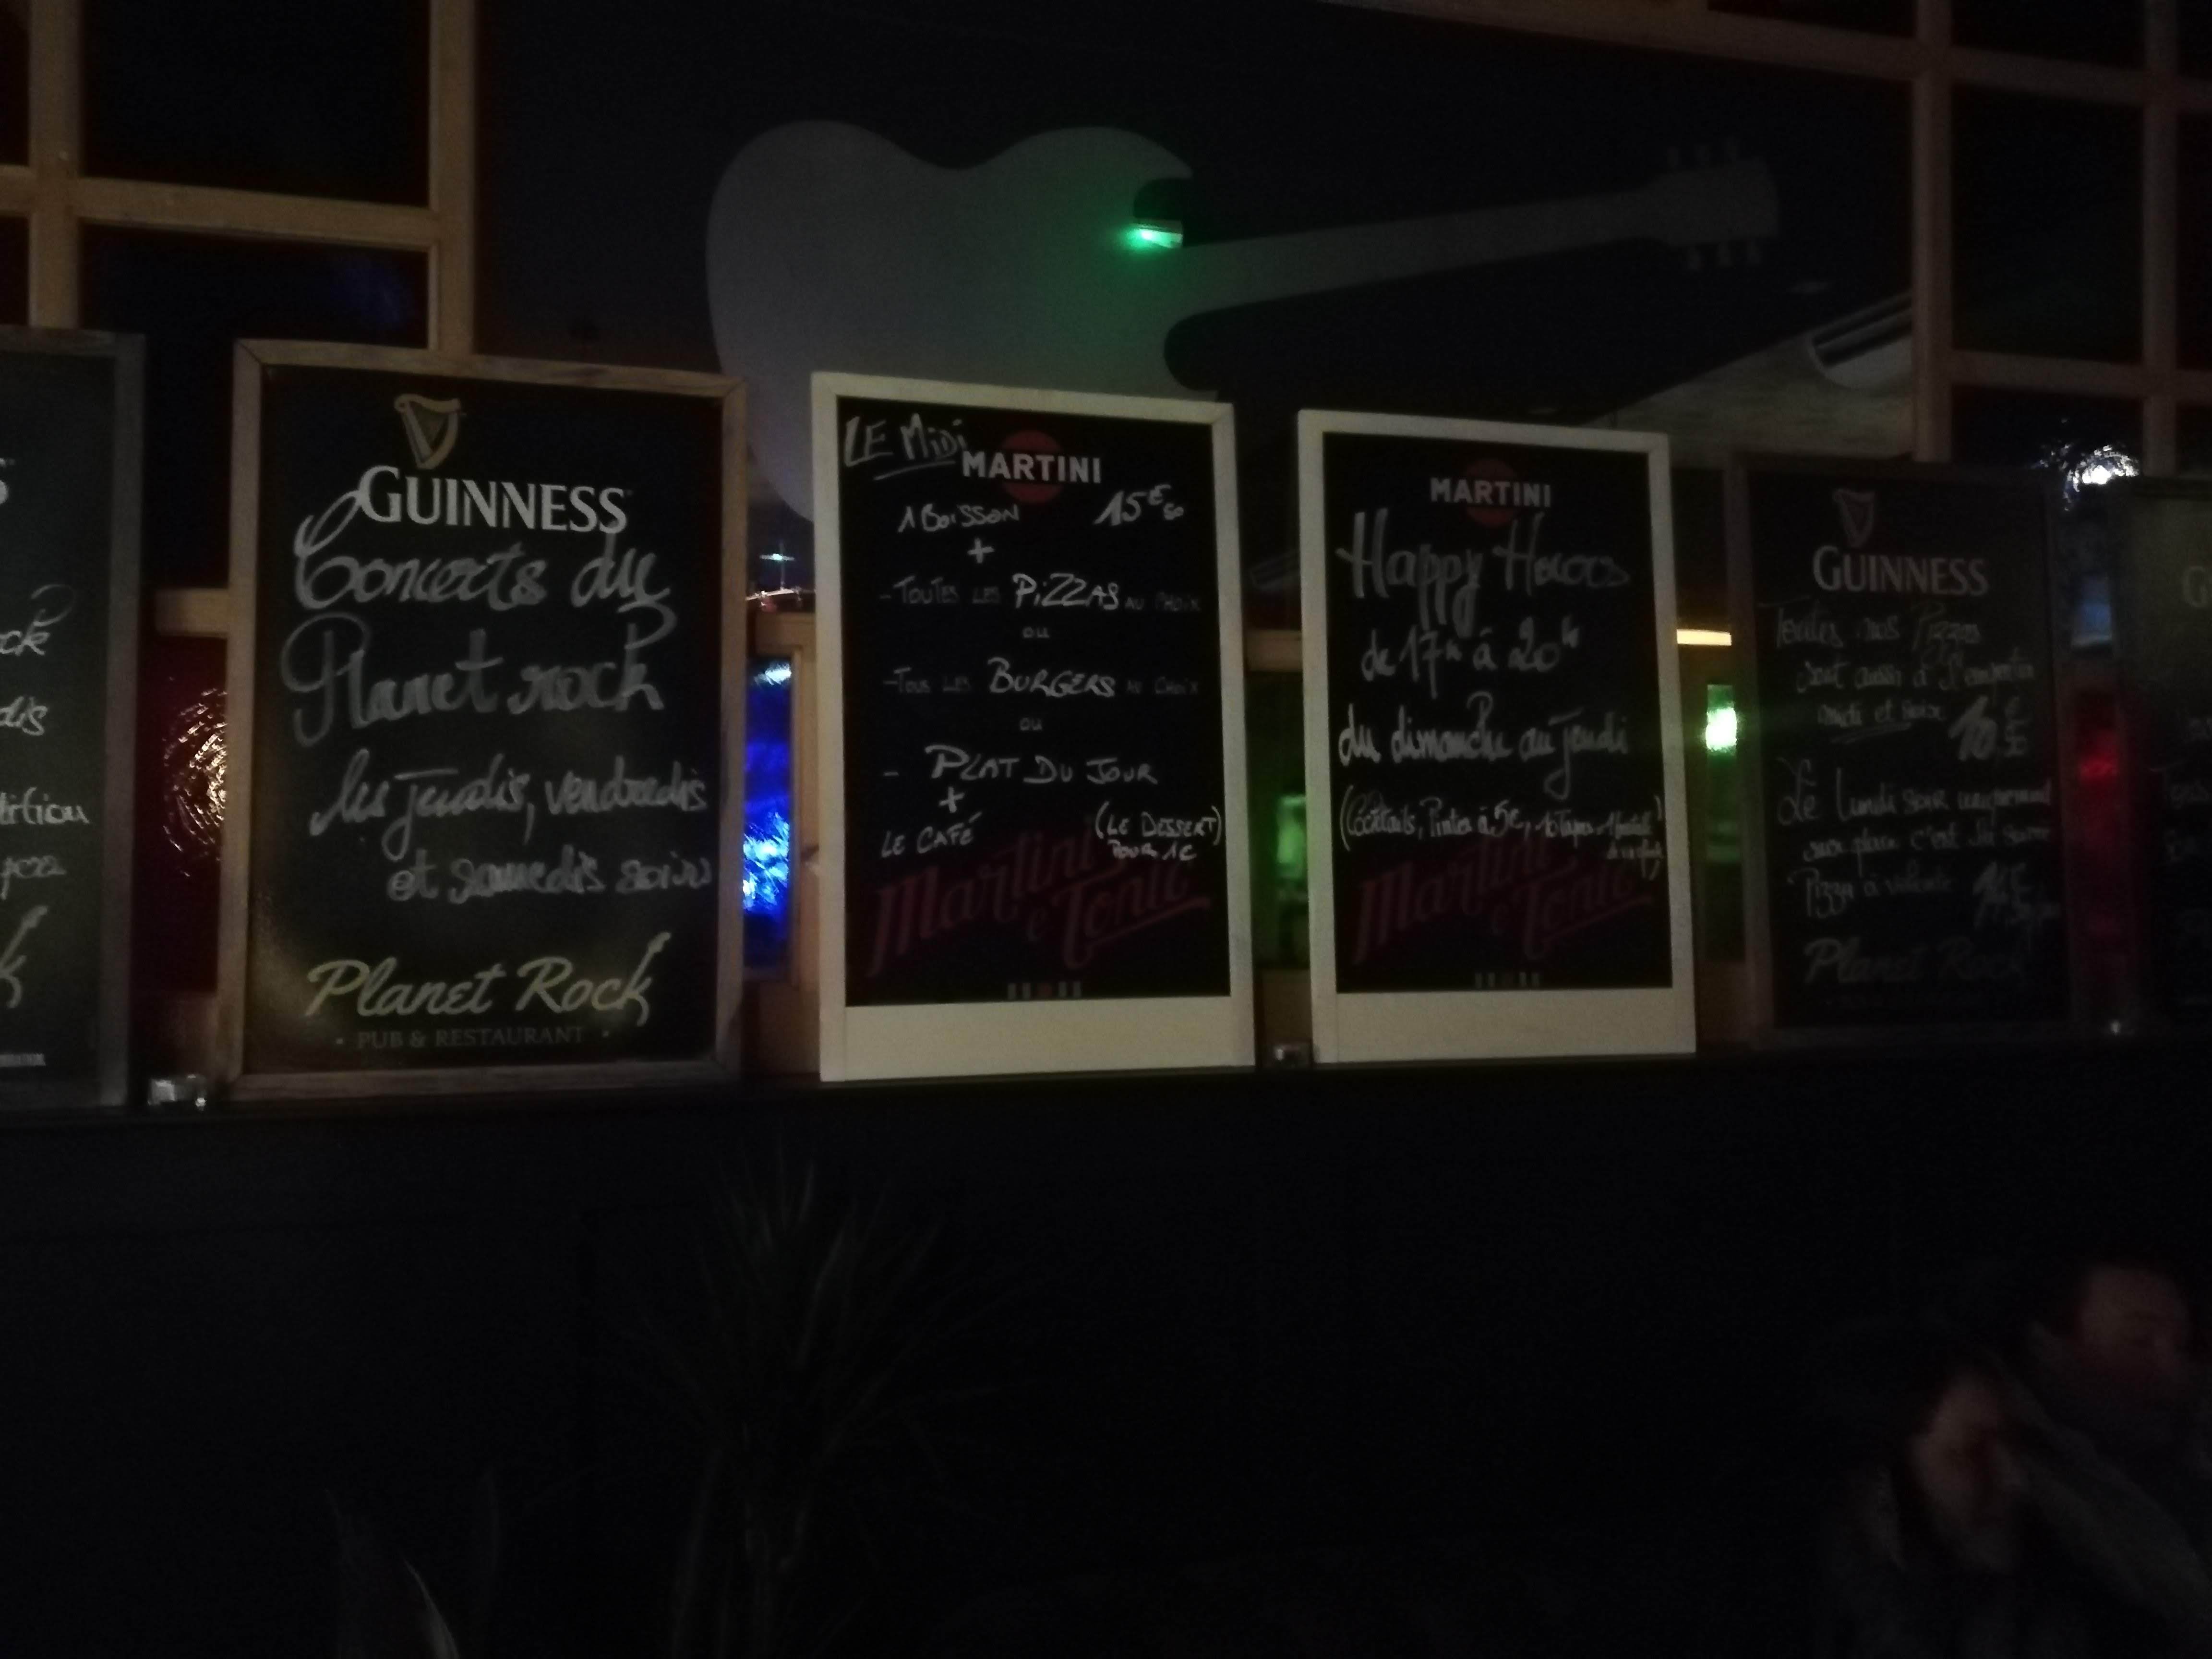 ck
dis
GUINNESS
Concerts du
Planet rock
les jeudis, vendredis
et samedis soirs
Planet Rock
PUB & RESTAURANT
LE MiDi
MARTINI
1 BOISSON 15€50
+
- TOUTES LES PiZZAS AU CHOIX
OU
- TOUS LES BURGERS AU CHOIX
OU
- PLAT DU JOUR
+
LE CAFÉ (LE DESSERT)
POUR 1€
Martini
e Tonic
MARTINI
Happy Hours
de 17h à 20h
du dimanche au jeudi
(Cocktails, Pintes à 5€, 10 Tapas
Martini
e Tonic
GUINNESS
Toutes nos Pizzas
sont aussi à l'emporter
midi et soir
Le lundi soir uniquement
sur place c'est
Pizza à volonté
Planet Rock
G